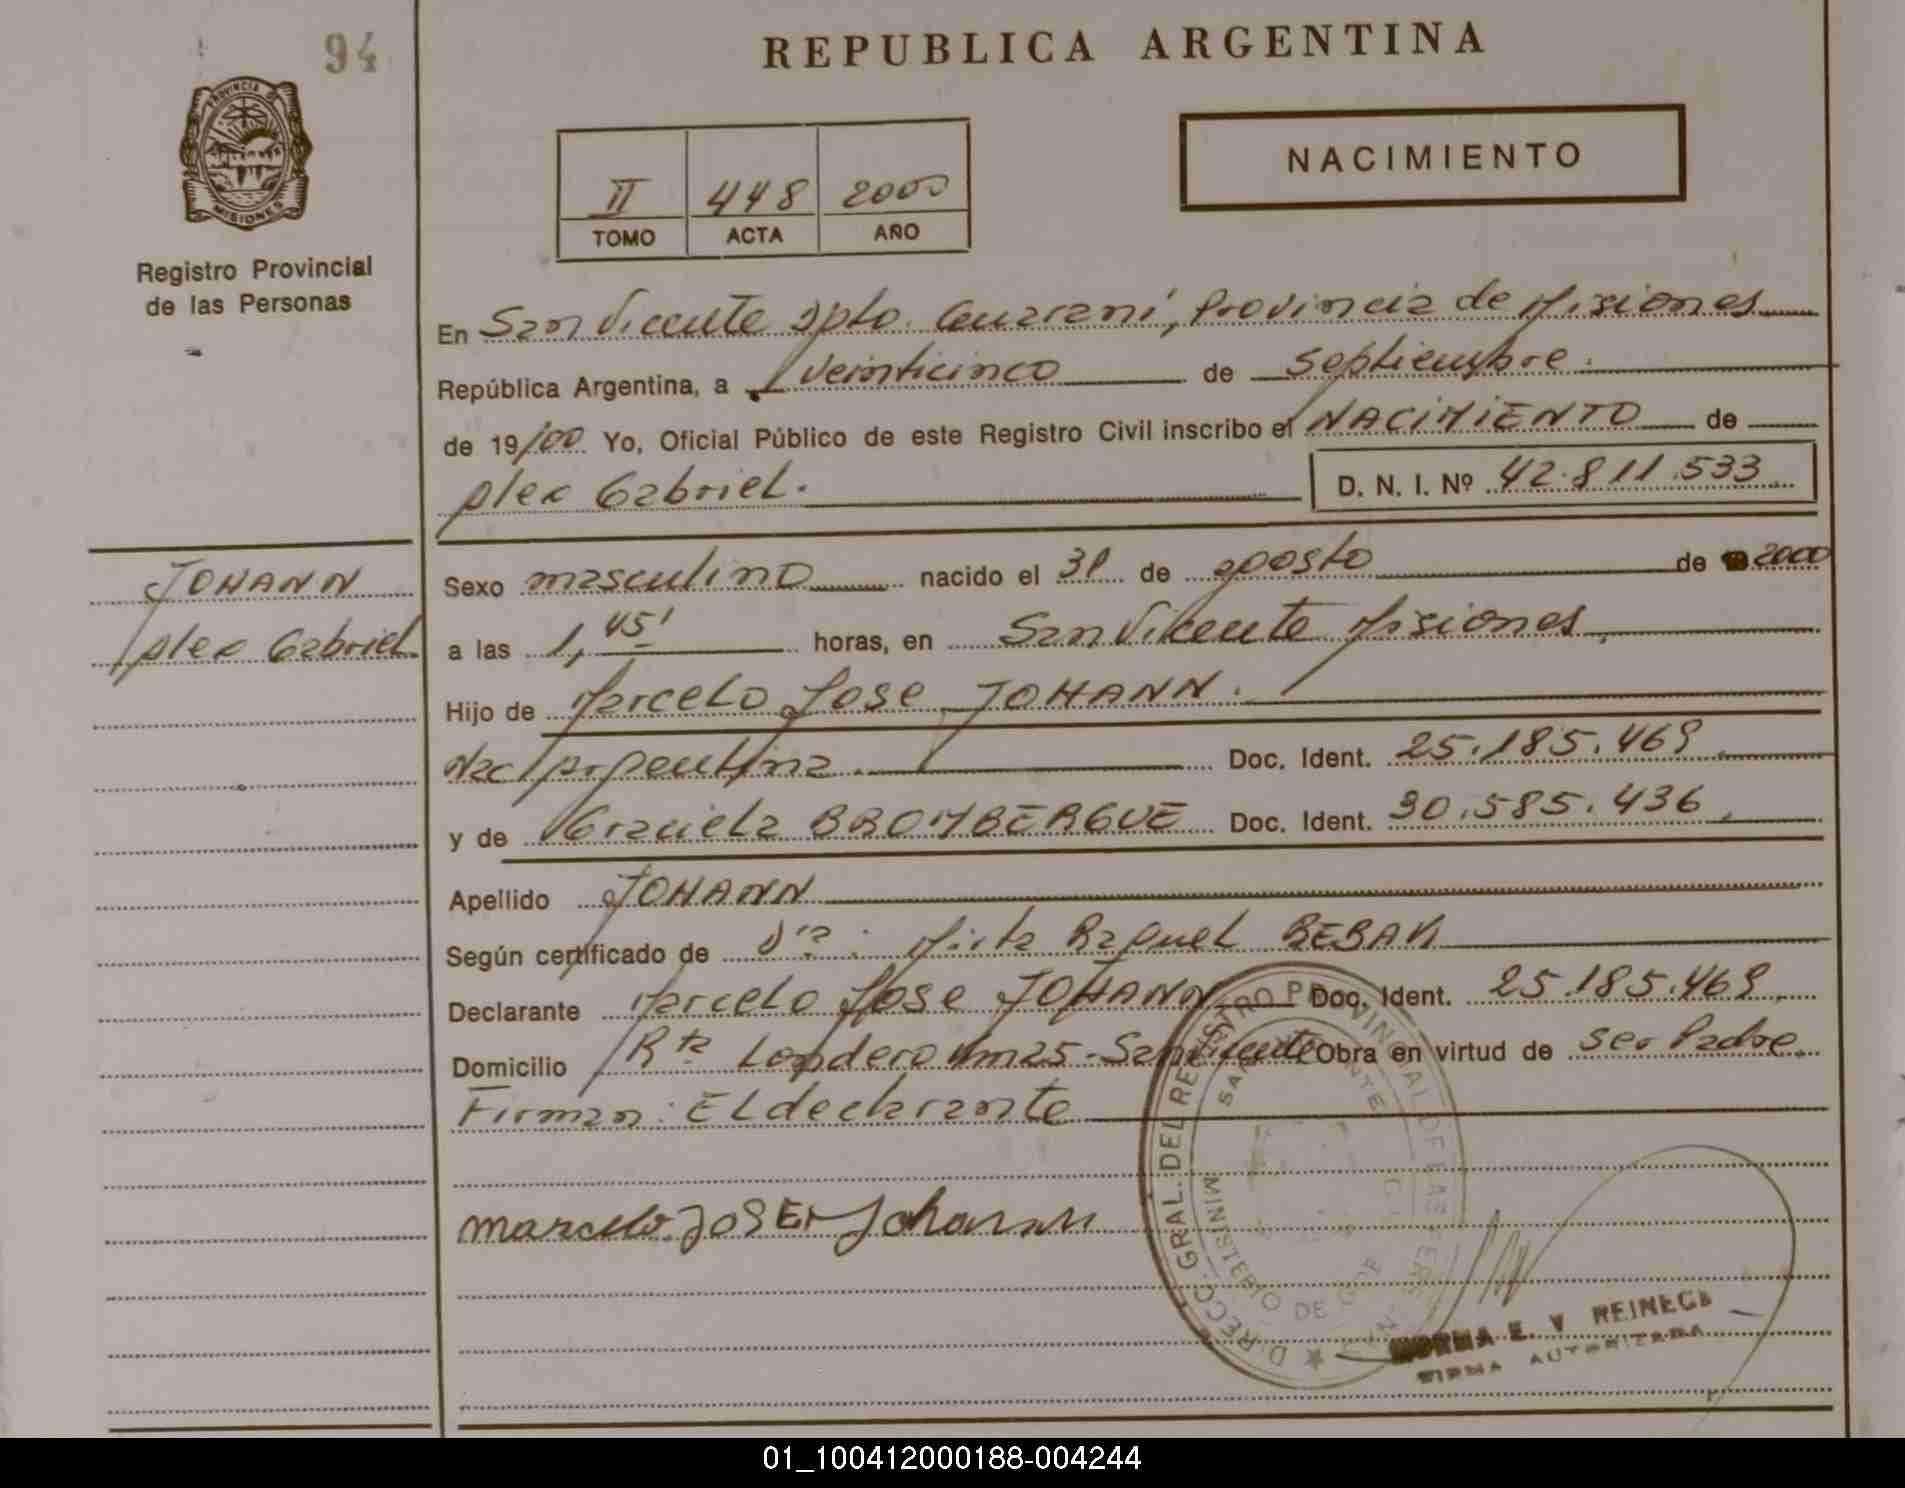 94
REPUBLICA ARGENTINA
PROVINCIA DE
MISIONES
Registro Provincial
de las Personas
II 448 2000
TOMO ACTA AÑO
NACIMIENTO
En San Vicente Dpto. Guaraní, Provincia de Misiones
República Argentina, a veinticinco de Septiembre.
de 19/00 Yo, Oficial Público de este Registro Civil inscribo el NACIMIENTO de
Alex Gabriel. D. N. I. Nº 42.811.533
JOHANN
Alex Gabriel.
Sexo masculino nacido el 31 de agosto de 2000
a las 1,45' horas, en San Vicente Misiones,
Hijo de Marcelo Jose JOHANN.
Nac Argentina. Doc. Ident. 25.185.469.
y de Graciela BROMBERGUE Doc. Ident. 30.585.436,
Apellido JOHANN
Según certificado de Dra: Mirta Raquel
Declarante Marcelo Jose JOHANN Doc. Ident. 25.185.469.
Domicilio Rta Londero Km25-San Vicente Obra en virtud de ser Padre.
Firman: EL declarante
marcelo JOSE Johann
DIRECC. GRAL. DEL REGISTRO PROVINCIAL DE LAS PERSONAS
SAN VICENTE
MINISTERIO DE
NORMA E. V. REINECK
FIRMA AUTORIZADA
01_100412000188-004244